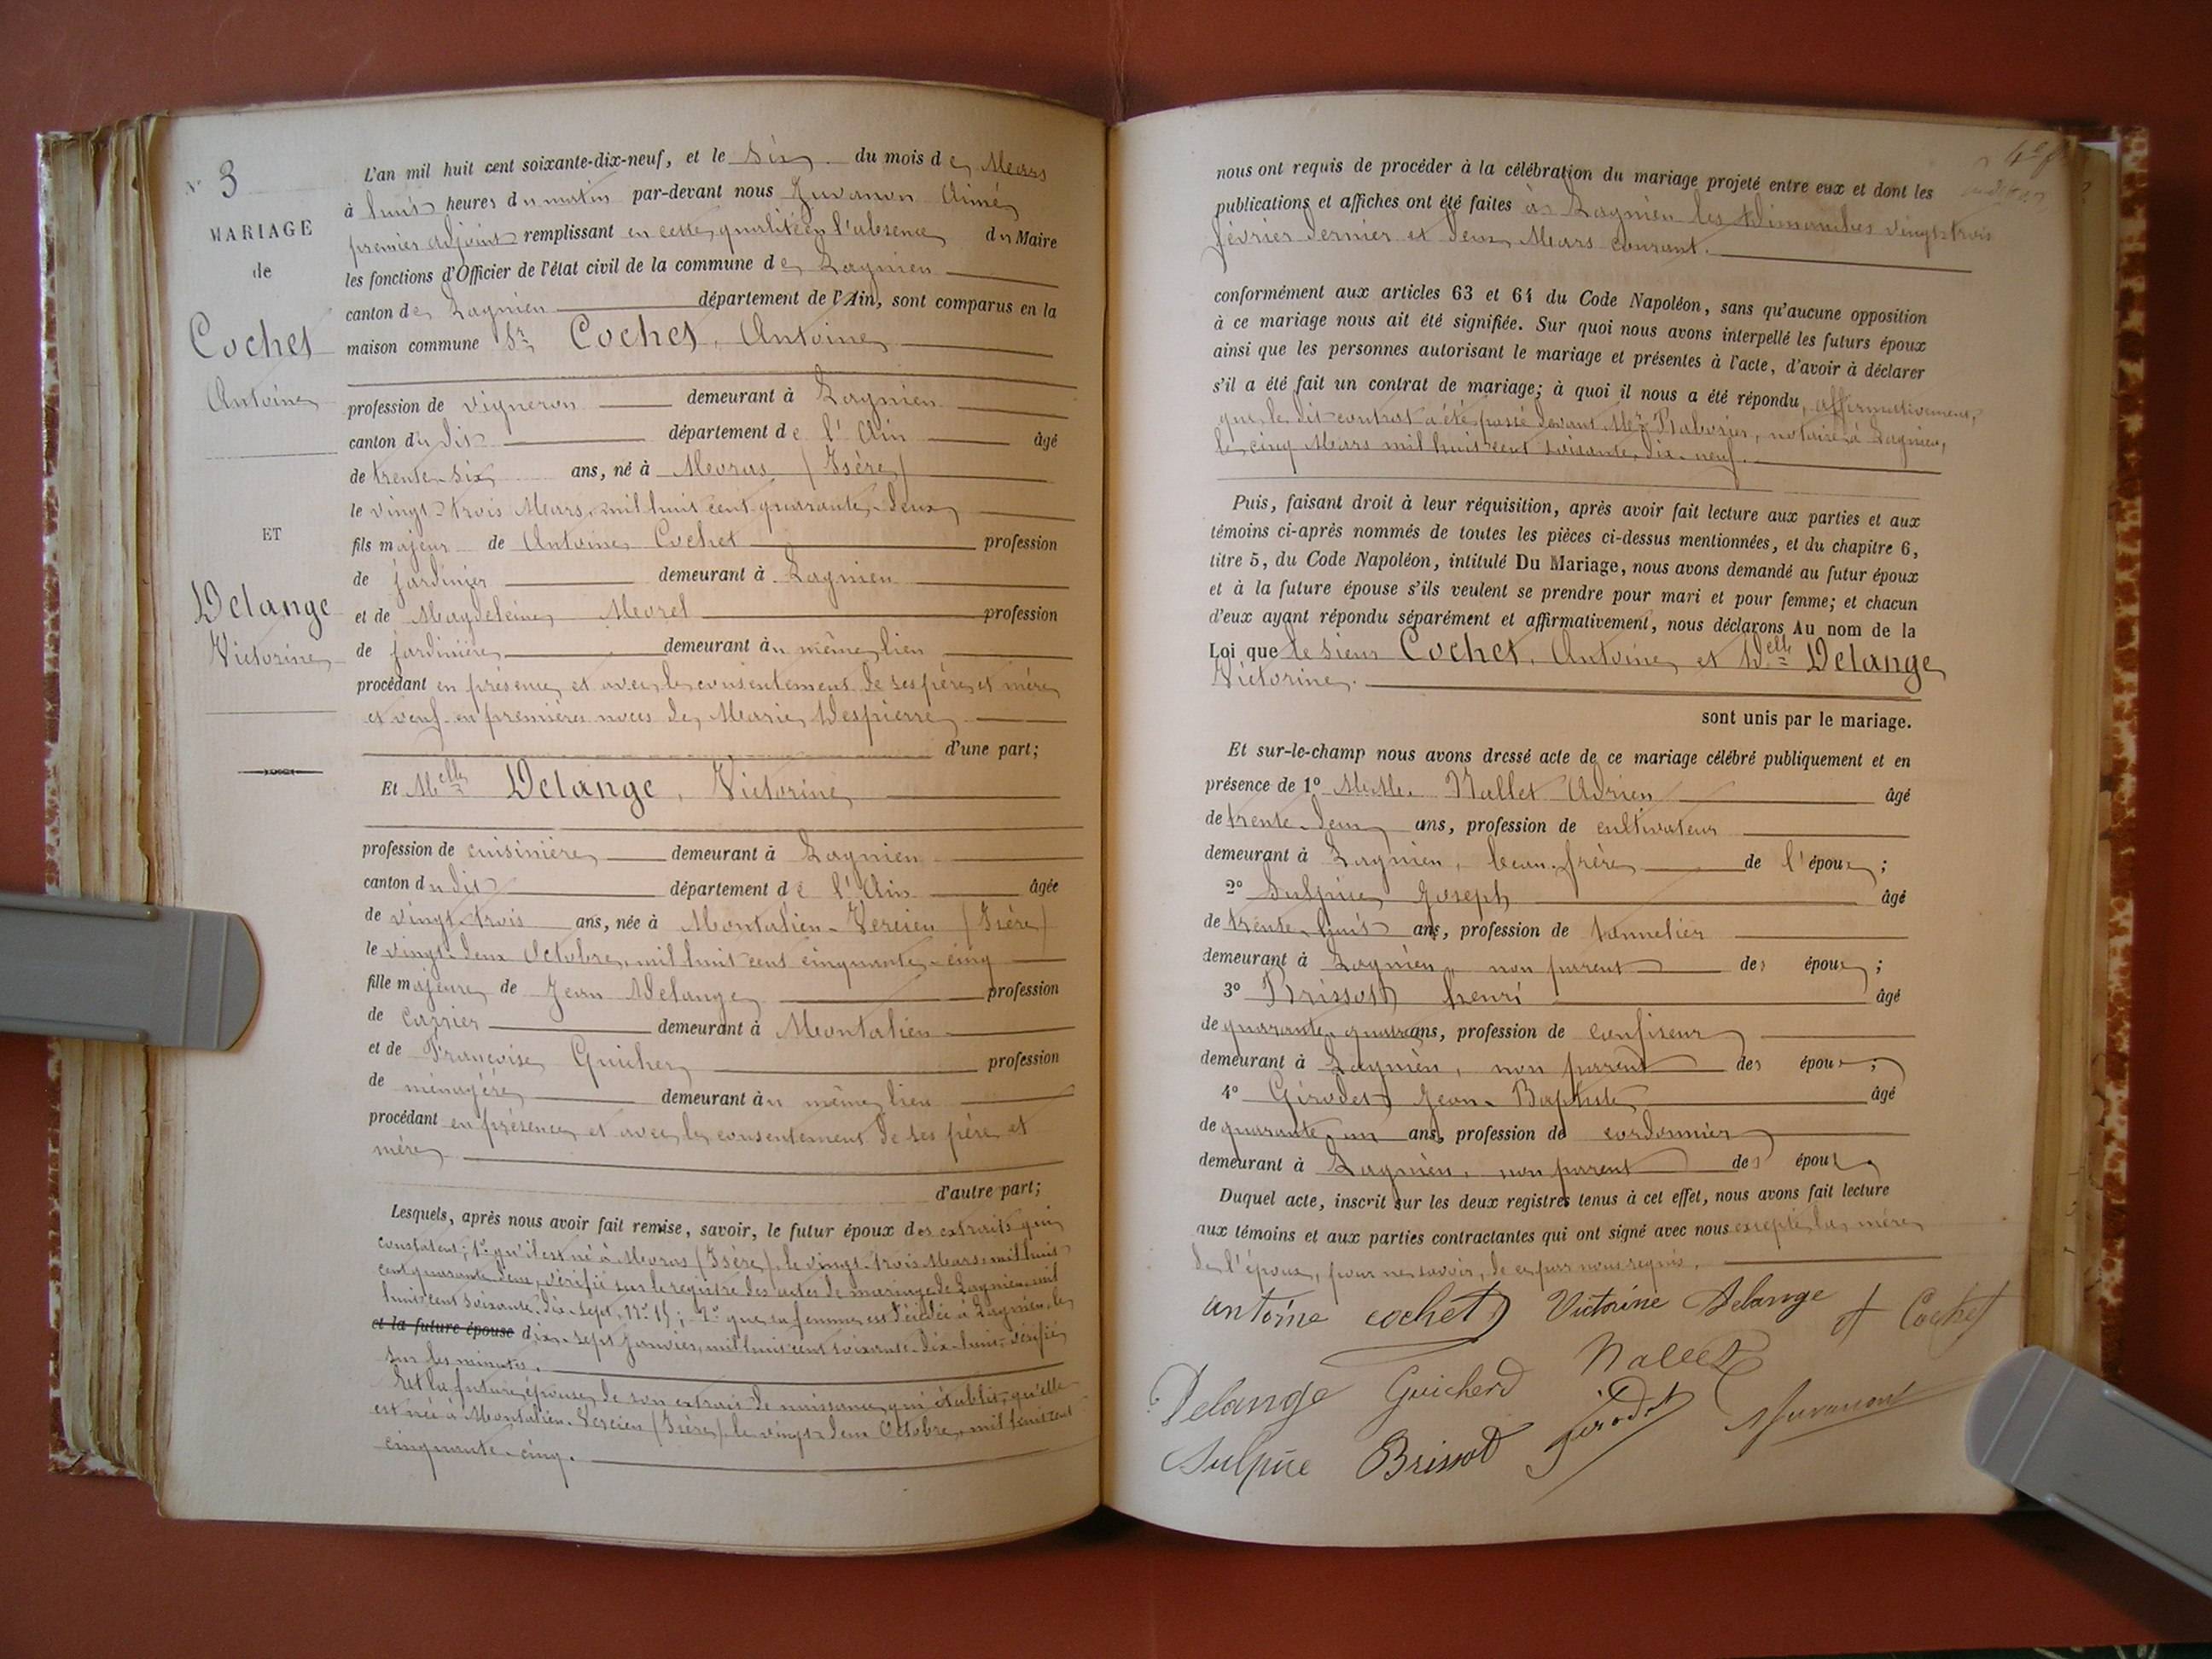 N° 3
MARIAGE
de
Cochet
Antoine
ET
Delange
Victorine
L'an mil huit cent soixante-dix-neuf, et le six du mois de Mars
à huit heures du matin par-devant nous Juvanon Aimé
premier adjoint remplissant en cette qualité en l'absence du Maire
les fonctions d'Officier de l'état civil de la commune de Lagnieu
canton de Lagnieu département de l'Ain, sont comparus en la
maison commune Sr Cochet, Antoine
profession de vigneron demeurant à Lagnieu
canton du dit département de l'Ain âgé
de trente-six ans, né à Moras (Isère)
le vingt-trois Mars, mil huit cent quarante-deux
fils majeur de Antoine Cochet profession
de jardinier demeurant à Lagnieu
et de Magdeleine Morel profession
de jardinière demeurant au même lieu
procédant en présence et avec le consentement de ses père et mère
et veuf en premières noces de Marie Despierre
d'une part;
Et Melle Delange, Victorine
profession de cuisinière demeurant à Lagnieu
canton du dit département de l'Ain âgée
de vingt-trois ans, née à Montalieu-Vercieu (Isère)
le vingt-deux Octobre, mil huit cent cinquante-cinq
fille majeure de Jean Delange profession
de carrier demeurant à Montalieu
et de Françoise Guicher profession
de ménagère demeurant au même lieu
procédant en présence et avec le consentement de ses père et
mère
d'autre part;
Lesquels, après nous avoir fait remise, savoir, le futur époux des extraits qui
constatent; 1° qu'il est né à Moras (Isère), le vingt-trois Mars mil huit
cent quarante-deux, vérifié sur le registre des actes de mariage de Lagnieu mil
huit cent soixante-dix-sept, n° 15; 2° que sa femme est décédée à Lagnieu, le
et la future épouse dix-sept janvier, mil huit cent soixante-dix-huit, vérifié
sur les minutes.
Et la future épouse de son extrait de naissance qui établit, qu'elle
est née à Montalieu-Vercieu (Isère), le vingt-deux Octobre, mil huit cent
cinquante-cinq.
nous ont requis de procéder à la célébration du mariage projeté entre eux et dont les
publications et affiches ont été faites à Lagnieu les Dimanches vingt-trois
février dernier et deux Mars courant.
conformément aux articles 63 et 64 du Code Napoléon, sans qu'aucune opposition
à ce mariage nous ait été signifiée. Sur quoi nous avons interpellé les futurs époux
ainsi que les personnes autorisant le mariage et présentes à l'acte, d'avoir à déclarer
s'il a été fait un contrat de mariage; à quoi il nous a été répondu, affirmativement,
que le dit contrat a été passé devant Me notaire à Lagnieu,
le cinq Mars mil huit cent soixante-dix-neuf.
Puis, faisant droit à leur réquisition, après avoir fait lecture aux parties et aux
témoins ci-après nommés de toutes les pièces ci-dessus mentionnées, et du chapitre 6,
titre 5, du Code Napoléon, intitulé Du Mariage, nous avons demandé au futur époux
et à la future épouse s'ils veulent se prendre pour mari et pour femme; et chacun
d'eux ayant répondu séparément et affirmativement, nous déclarons Au nom de la
Loi que le sieur Cochet, Antoine, et Delle Delange
Victorine.
sont unis par le mariage.
Et sur-le-champ nous avons dressé acte de ce mariage célébré publiquement et en
présence de 1° M.M. Nallet Adrien âgé
de trente-deux ans, profession de cultivateur
demeurant à Lagnieu, beau-frère de l'époux;
2° Sulpice Joseph âgé
de trente-huit ans, profession de tonnelier
demeurant à Lagnieu, non parent des époux;
3° Brissot henri âgé
de quarante-quatre ans, profession de confiseur
demeurant à Lagnieu, non parent des époux;
4° Girodet Jean-Baptiste âgé
de quarante-un ans, profession de cordonnier
demeurant à Lagnieu, non parent des époux
Duquel acte, inscrit sur les deux registres tenus à cet effet, nous avons fait lecture
aux témoins et aux parties contractantes qui ont signé avec nous excepté la mère
de l'époux, pour ne savoir, de ce par nous requis.
antoine cochet Victorine Delange A Cochet
Delange Guicherd Nallet
Sulpice Brissot Girodet Ajuvanon